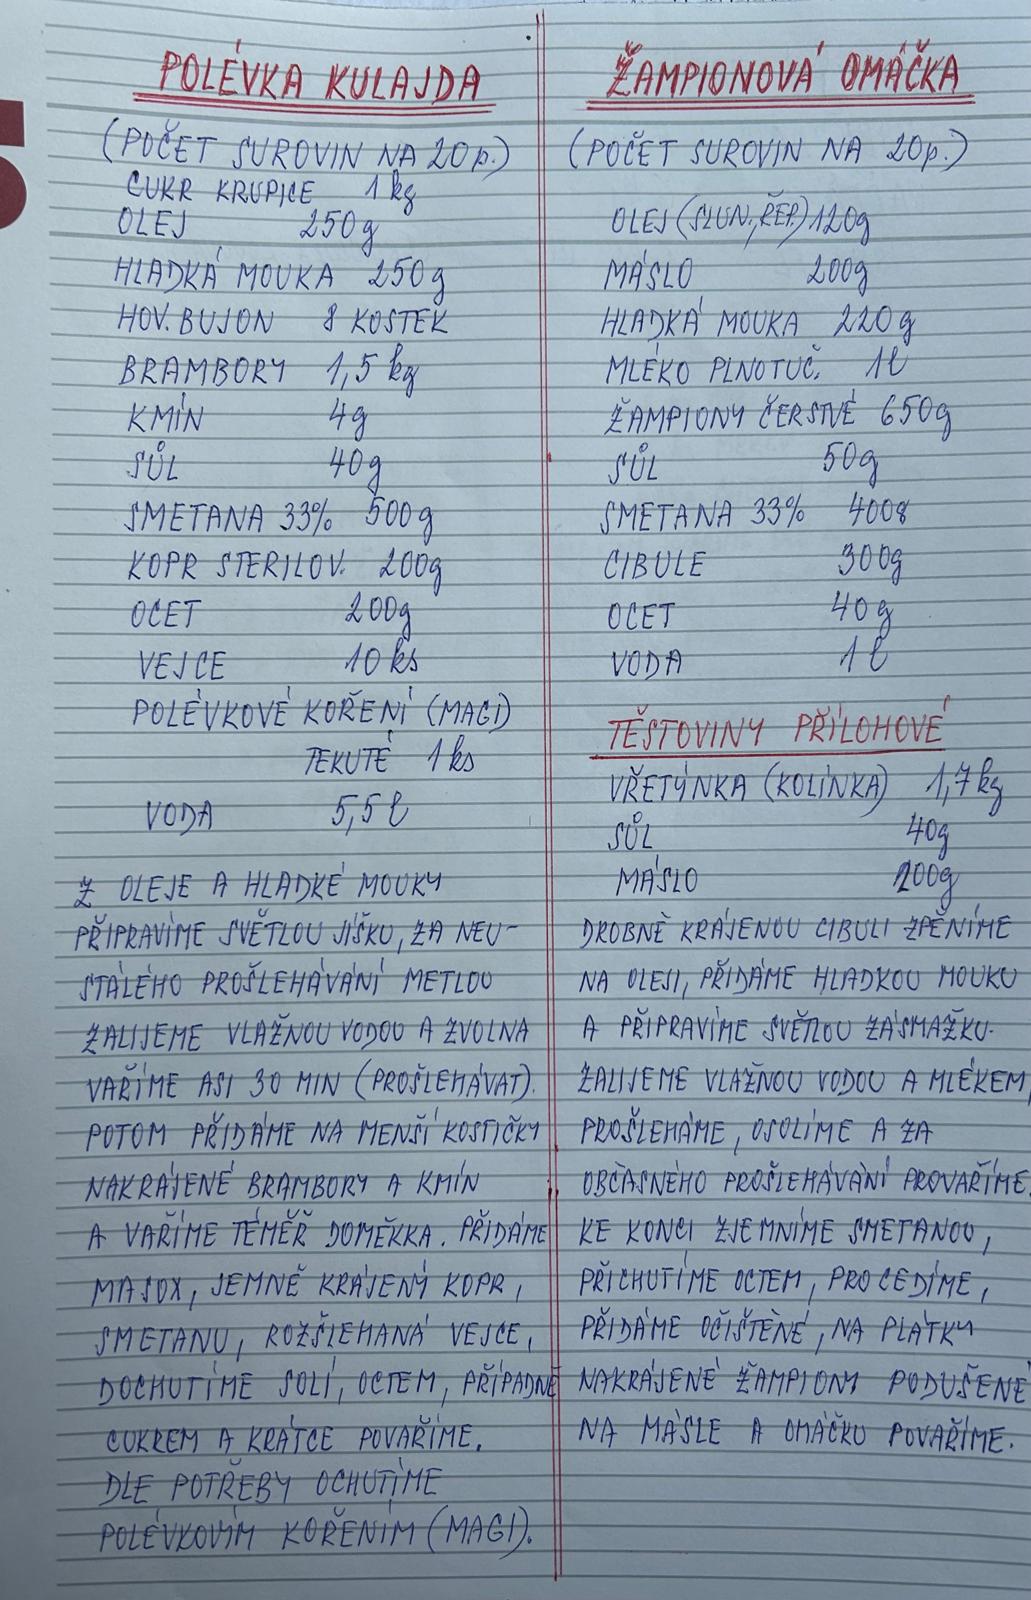 POLÉVKA KULAJDA
(POČET SUROVIN NA 20p.)
CUKR KRUPICE 1 kg
OLEJ 250g
HLADKÁ MOUKA 250g
HOV. BUJON 8 KOSTEK
BRAMBORY 1,5 kg
KMÍN 4g
SŮL 40g
SMETANA 33% 500g
KOPR STERILOV. 200g
OCET 200g
VEJCE 10 ks
POLÉVKOVÉ KOŘENÍ (MAGI)
TEKUTÉ 1 ks
VODA 5,5 l
Z OLEJE A HLADKÉ MOUKY
PŘIPRAVÍME SVĚTLOU JÍŠKU, ZA NEU-
STÁLÉHO PROŠLEHÁVÁNÍ METLOU
ZALIJEME VLAŽNOU VODOU A ZVOLNA
VAŘÍME ASI 30 MIN (PROŠLEHÁVAT).
POTOM PŘIDÁME NA MENŠÍ KOSTIČKY
NAKRÁJENÉ BRAMBORY A KMÍN
A VAŘÍME TÉMĚŘ DOMĚKKA. PŘIDÁME
MASOX, JEMNĚ KRÁJENÝ KOPR,
SMETANU, ROZŠLEHANÁ VEJCE,
DOCHUTÍME SOLÍ, OCTEM, PŘÍPADNĚ
CUKREM A KRÁTCE POVAŘÍME.
DLE POTŘEBY OCHUTÍME
POLÉVKOVÝM KOŘENÍM (MAGI).
ŽAMPIONOVÁ OMÁČKA
(POČET SUROVIN NA 20p.)
OLEJ (SLUN., ŘEP.) 120g
MÁSLO 200g
HLADKÁ MOUKA 220g
MLÉKO PLNOTUČ. 1l
ŽAMPIONY ČERSTVÉ 650g
SŮL 50g
SMETANA 33% 400g
CIBULE 300g
OCET 40g
VODA 1 l
TĚSTOVINY PŘÍLOHOVÉ
VŘETÝNKA (KOLÍNKA) 1,7kg
SŮL 40g
MÁSLO 200g
DROBNĚ KRÁJENOU CIBULI ZPĚNÍME
NA OLEJI, PŘIDÁME HLADKOU MOUKU
A PŘIPRAVÍME SVĚTLOU ZÁSMAŽKU.
ZALIJEME VLAŽNOU VODOU A MLÉKEM,
PROŠLEHÁME, OSOLÍME A ZA
OBČASNÉHO PROŠLEHÁVÁNÍ PROVAŘÍME.
KE KONCI ZJEMNÍME SMETANOU,
PŘICHUTÍME OCTEM, PROCEDÍME,
PŘIDÁME OČIŠTĚNÉ, NA PLÁTKY
NAKRÁJENÉ ŽAMPIONY PODUŠENÉ
NA MÁSLE A OMÁČKU POVAŘÍME.